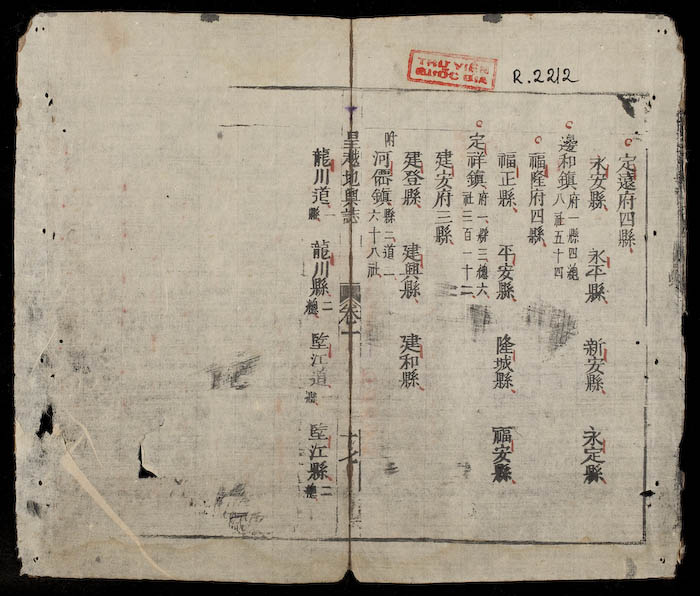 THƯ VIỆN
QUỐC GIA
R.2212
定遠府四縣
永安縣 永平縣 新安縣 永定縣
邊和鎮府一縣四總八社五十四
福隆府四縣
福正縣 平安縣 隆城縣 福安縣
定祥鎮府一縣三總六社三百一十二
建安府三縣
建登縣 建興縣 建和縣
附河僊鎮縣二道二六十八社
皇越地輿誌 卷一 十七
龍川道一縣 龍川縣二總 堅江道一縣 堅江縣二總